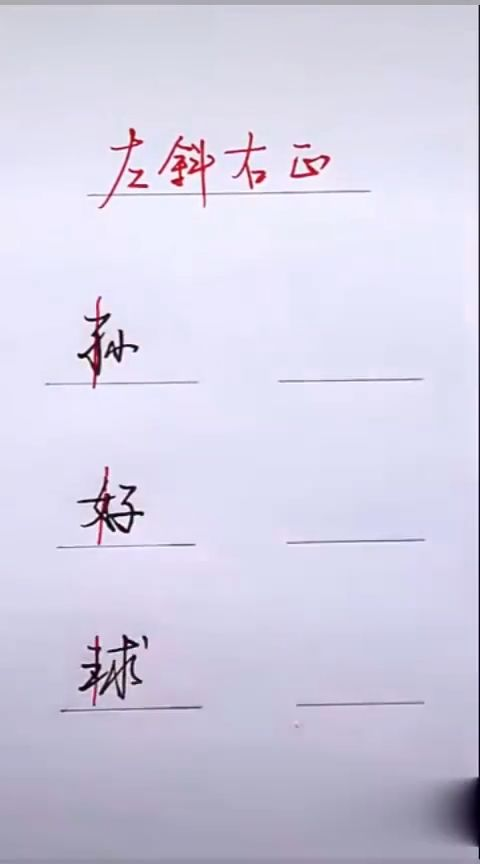 左斜右正
孙
好
球